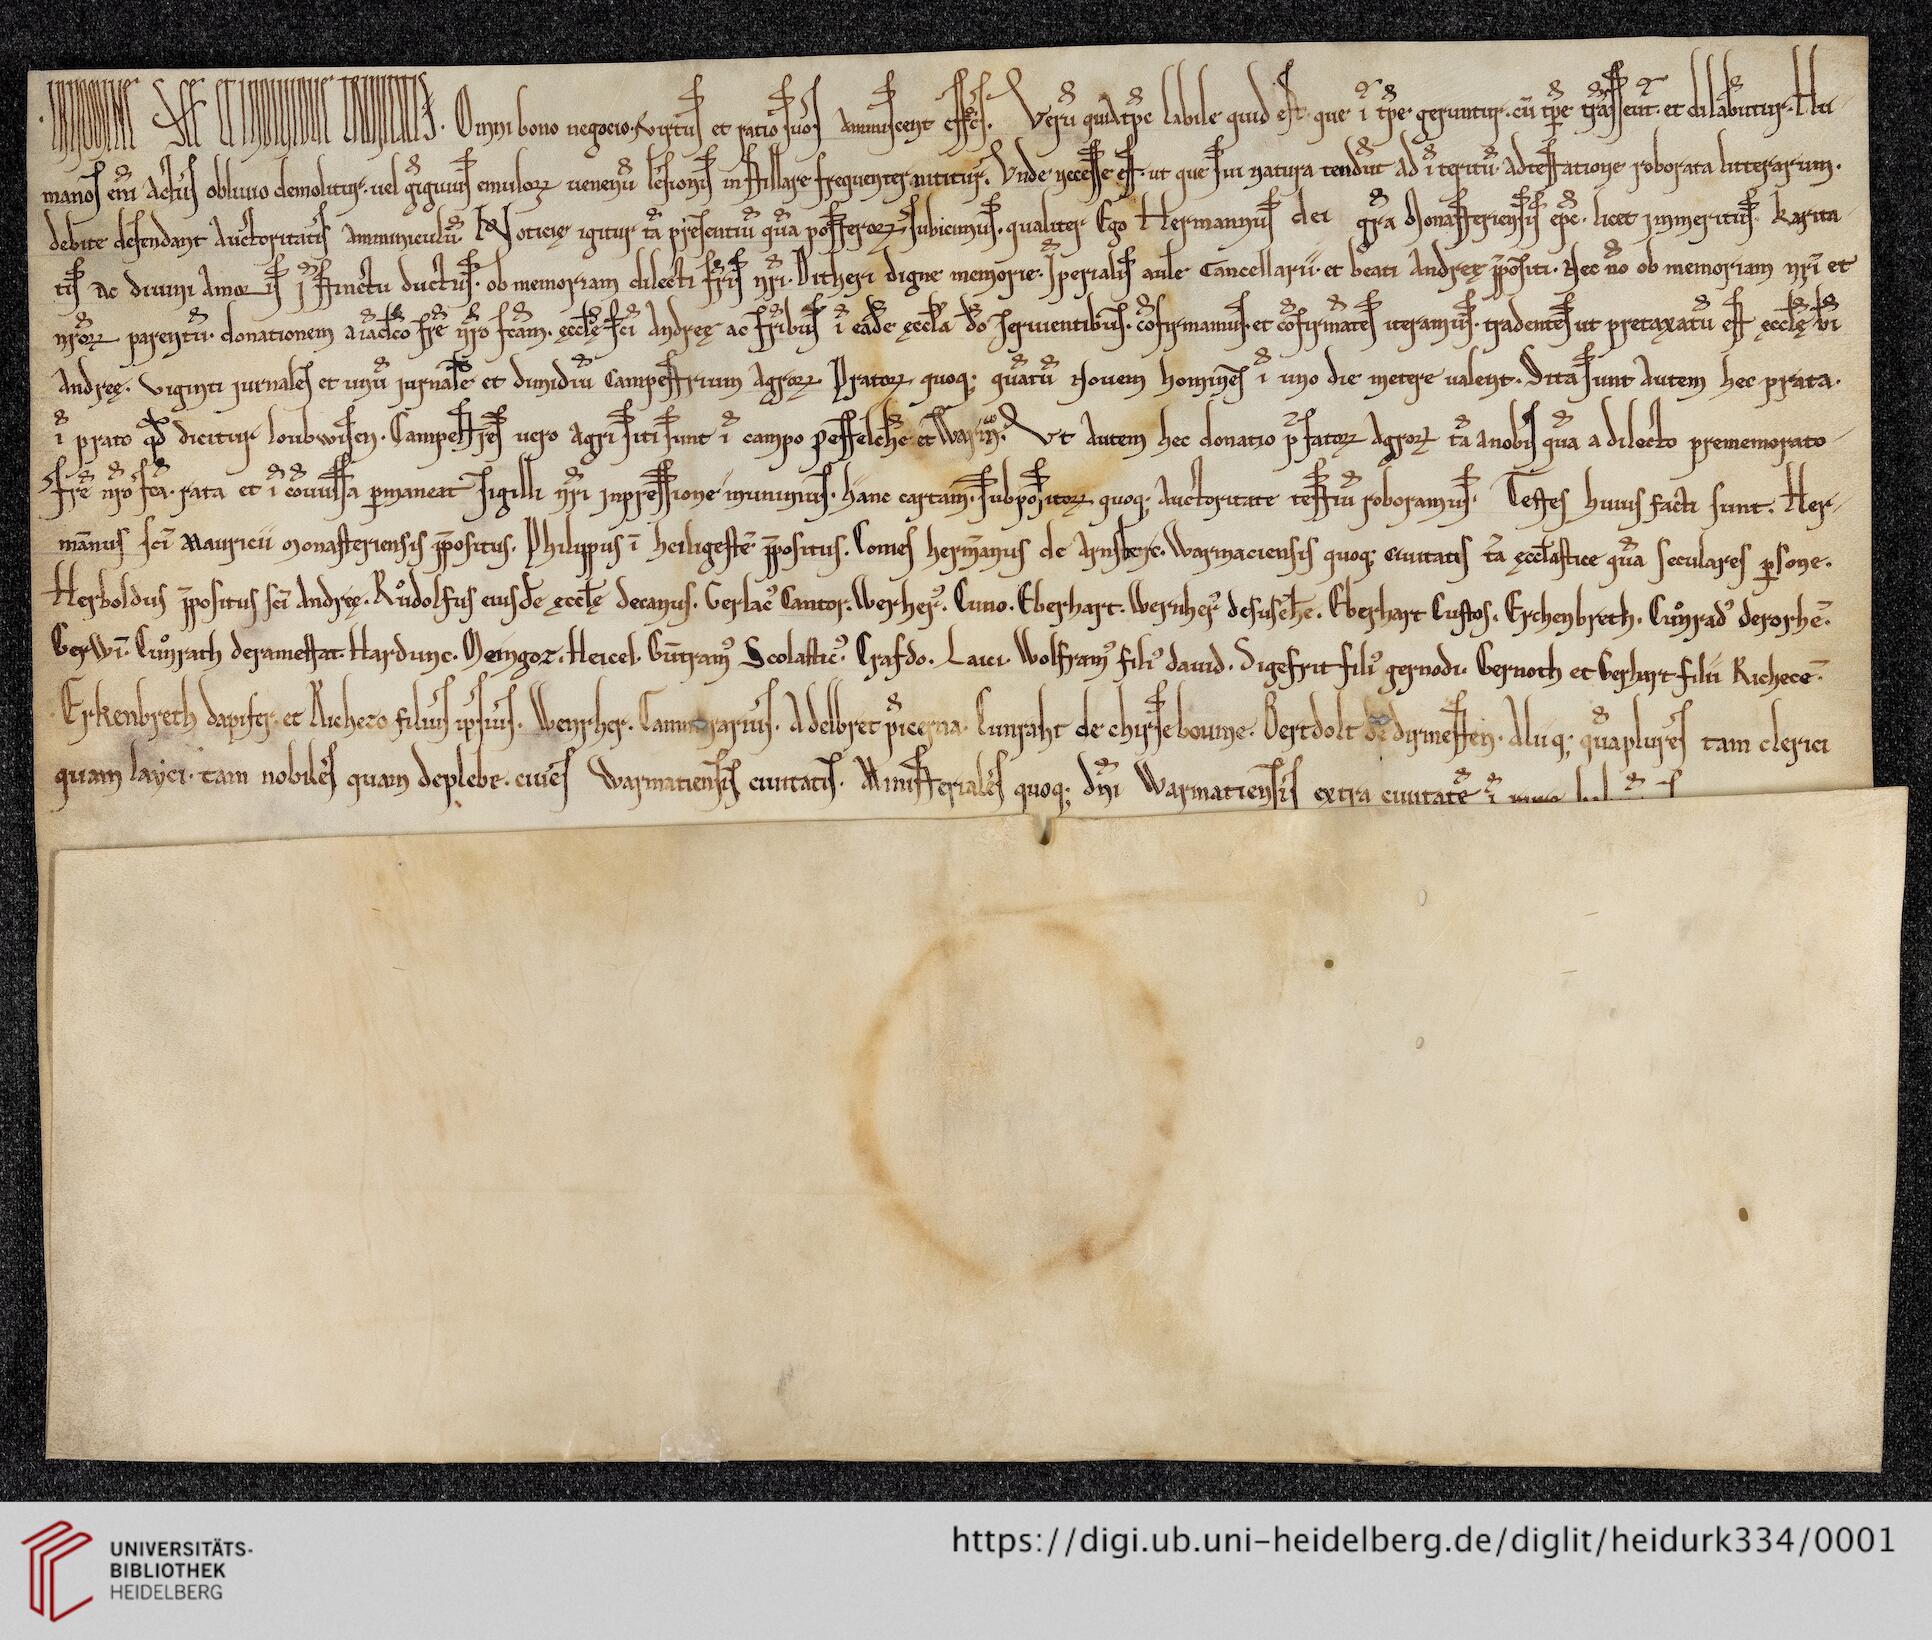 IN NOMINE SCE ET INDIVIDUE TRINITATIS. Omni bono negocio. virtus et ratio suos amminiscent effcs. Verū quia tp̄e labile quid est que ī tp̄e geruntur. cū tp̄e trāsseūt. et dilabūtur. Hu-
manos eni actus oblivio demolitur. vel gigūius emulorꝝ venenū lesionis instillare frequenter nititur. Unde necesse est. ut que sui natura tendūt ad īteritū. adtestatione roborata litterarum.
debite defendant auctoritatis amminiculū. Noticię igitur tā presentiū quā posterorꝝ subicimus. qualiter Ego Hermannus dei gr̄a Monasteriensis ep̄c. licet immeritus. karita-
tis ac divini amoris īstinctu ductus. ob memoriam dilecti fr̄is nr̄i. Ditheri digne memorie. Īperialis aule Cancellarii. et beati Andreę p̄positi. Nec nō ob memoriam nr̄i et
nr̄orꝝ parentū. donationem a iādco fr̄e nr̄o fc̄am. ęccl̄ę sc̄i Andreę ac fr̄ibus ī eadē ęccl̄a dō servientibus. cōfirmamus. et cōfirmātes iteramus. tradentes ut pretaxatū est ęccl̄ę bt̄i
Andreę. viginti iurnales et unū iurnale et dimidiū campestrium agrorꝝ. Pratorꝝ quoq; quātū novem homines ī uno die metere valent. Sita sunt autem hec prata.
ī prato qd̄ dicitur loubwisen. Campestres vero agri siti sunt ī campo peffelchē et Warin. Ut autem hec donatio p̄fatorꝝ agrorꝝ tā a nobis quā a dilecto prememorato
fr̄e nr̄o fc̄a. rata et ī cōvulsa p̄maneat sigilli nr̄i inpressione munimus. hanc cartam. subpositorꝝ quoq; auctoritate testiū roboramus. Testes huius facti sunt. Her-
mānus sc̄i Mauricii monasteriensis p̄positus. Philippus ī heiligestē p̄positus. Comes hermānus de Arnsberc. Warmaciensis quoq; civitatis tā ęccl̄astice quā seculares p̄sone.
Herboldus p̄positus sc̄i Andreę. Rudolfus eiusdē ęccl̄ę decanus. Gerlac' Cantor. Werher'. Cuno. Eberhart. Wernher' de susēhe. Eberhart Custos. Erchenbreth. Cunrad' de rorhē.
Gerwī. Cunrath de ramestat. Hardunc. Meingoz. Heicel. Gūtram' Scolastic'. Crafdo. Laici. Wolfram' fili' david. Sigefrit fili' gernodi. Gernoth et Gerhart filii Richecē.
Erkenbreth dapifer. et Richezo filius ipsius. Wenrher. Camerarius. Adelbret picerna. Cunraht de chirseboume. Bertdolt de dirmesten. Alii q; quāplures tam clerici
quam layci. tam nobiles quam de plebe. cives Warmatiensis civitatis. Ministeriales quoq; dn̄i Warmatiensis extra civitatē ī
UNIVERSITÄTS-
BIBLIOTHEK
HEIDELBERG
https://digi.ub.uni-heidelberg.de/diglit/heidurk334/0001